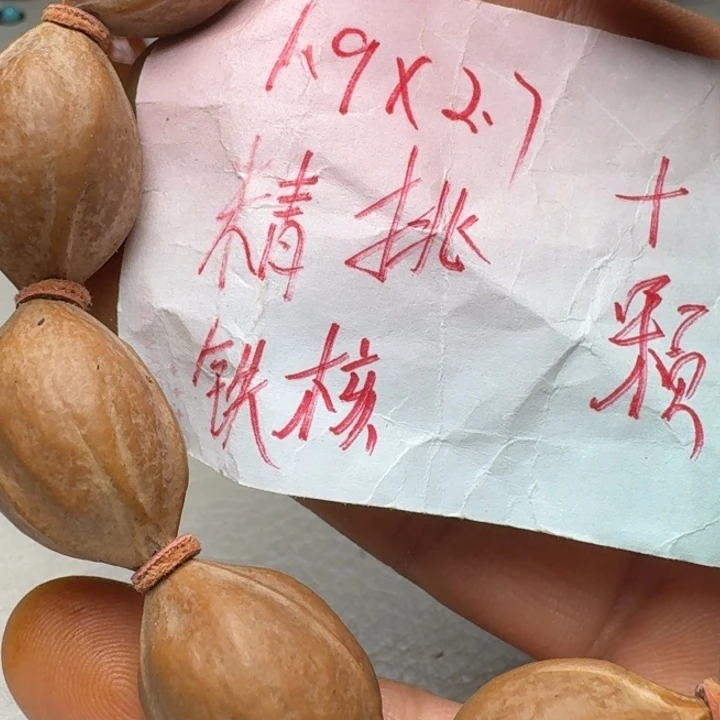 1.9×2.7
精挑
铁核
十颗